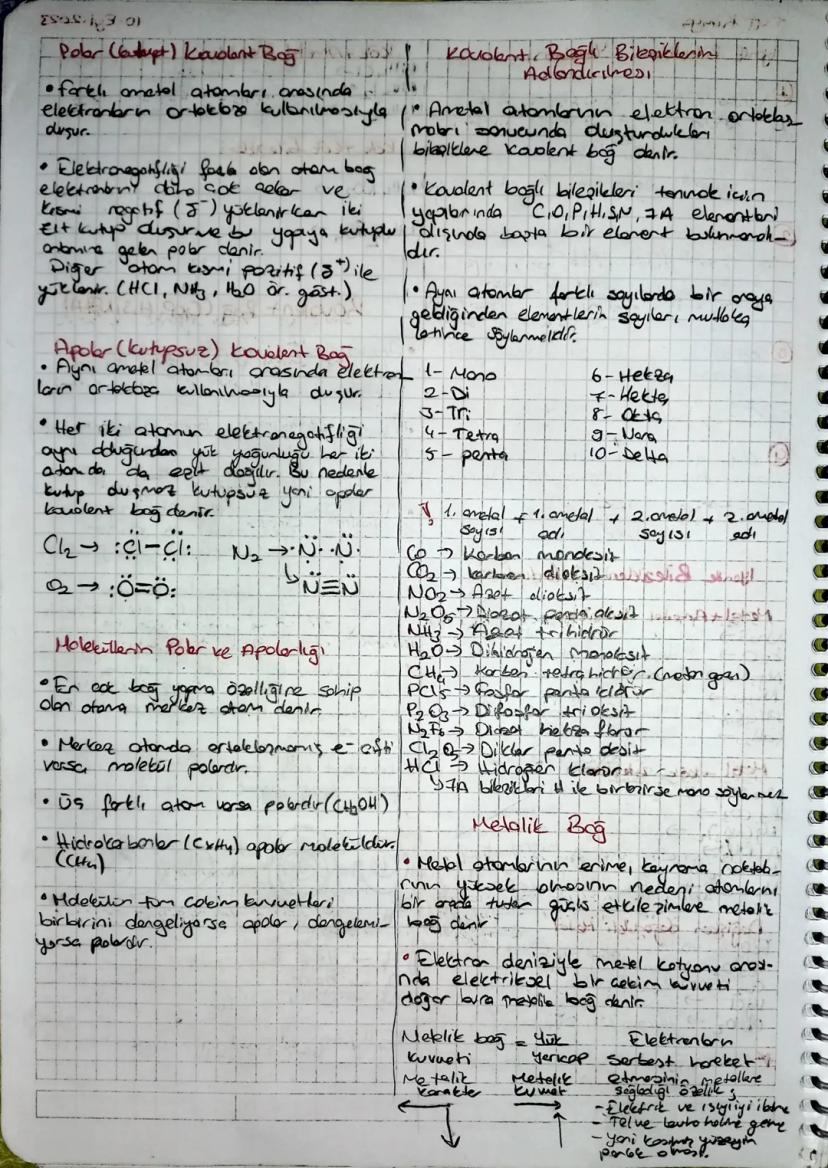 Polar (kutuplu) Kovalent Bağ
• farklı ametal atomları arasında
elektronların ortaklaşa kullanılmasıyla
oluşur.
• Elektronegatifliği fazla olan atom bağ
elektronlarını daha çok çeker ve
kısmi negatif (δ⁻) yüklenirken iki
zıt kutup oluşur ve bu yapıya kutuplu
anlamına gelen polar denir.
Diğer atom kısmi pozitif (δ⁺) ile
yüklenir. (HCl, NH₃, H₂O ör. göst.)
Apolar (kutupsuz) Kovalent Bağ
• Aynı ametal atomları arasında elektron
ların ortaklaşa kullanılmasıyla oluşur.
• Her iki atomun elektronegatifliği
aynı olduğundan yük yoğunluğu her iki
atomda da eşit dağılır. Bu nedenle
kutup oluşmaz kutupsuz yani apolar
kovalent bağ denir.
Cl₂ → :Cl–Cl: N₂ → ·N· ·N·
N≡N
O₂ → :O=O:
Moleküllerin Polar ve Apolarlığı
• En çok bağ yapma özelliğine sahip
olan atoma merkez atom denir.
• Merkez atomda ortaklaşmamış e⁻ çifti
varsa molekül polardır.
• Üç farklı atom varsa polardır (CH₃OH)
• Hidrokarbonlar (CxHy) apolar moleküldür.
(CH₄)
• Molekülün tüm çekim kuvvetleri
birbirini dengeliyorsa apolar, dengelemi-
yorsa polardır.
Kovalent Bağlı Bileşiklerin
Adlandırılması
• Ametal atomlarının elektron ortaklaş
maları sonucunda oluşturdukları
bileşiklere kovalent bağ denir.
• Kovalent bağlı bileşikleri tanımak için
yapılarında C,O,P,H,S,N, 7A elementleri
dışında başka bir element bulunmamalı-
dır.
• Aynı atomlar farklı sayılarda bir araya
geldiğinden elementlerin sayıları mutlaka
latince söylenmelidir.
1- Mono 6- Hekza
2- Di 7- Hekta
3- Tri 8- Okta
4- Tetra 9- Nona
5- penta 10- Deka
! 1. ametal + 1. ametal + 2. ametal + 2. ametal
sayısı adı sayısı adı
CO → Karbon monoksit
CO₂ → karbon dioksit
NO₂ → Azot dioksit
N₂O₅ → Diazot penta oksit
NH₃ → Azot trihidrür
H₂O → Dihidrojen monoksit
CH₄ → Karbon tetra hidrür. (metan gazı)
PCl₅ → Fosfor penta klorür
P₂O₃ → Difosfor trioksit
N₂F₆ → Diazot hekza florür
Cl₂O₅ → Diklor penta oksit
HCl → Hidrojen klorür
↳ 7A bileşikleri H ile birbirirse mono söylenmez
Metalik Bağ
• Metal atomlarının erime, kaynama noktala-
rının yüksek olmasının nedeni atomlarını
bir arada tutan güçlü etkileşimlere metalik
bağ denir
• Elektron deniziyle metal katyonu arası-
nda elektriksel bir çekim kuvveti
doğar buna metalik bağ denir.
Metalik bağ = Yük
kuvveti yarıçap
Metalik Metalik
karakter kuvvet
Elektronların
serbest hareket
etmesinin metallere
sağladığı özellik;
- Elektrik ve ısıyı iyi iletme
- Tel ve levha haline gelme
- yeni kesilmiş yüzeyin
parlak olması.